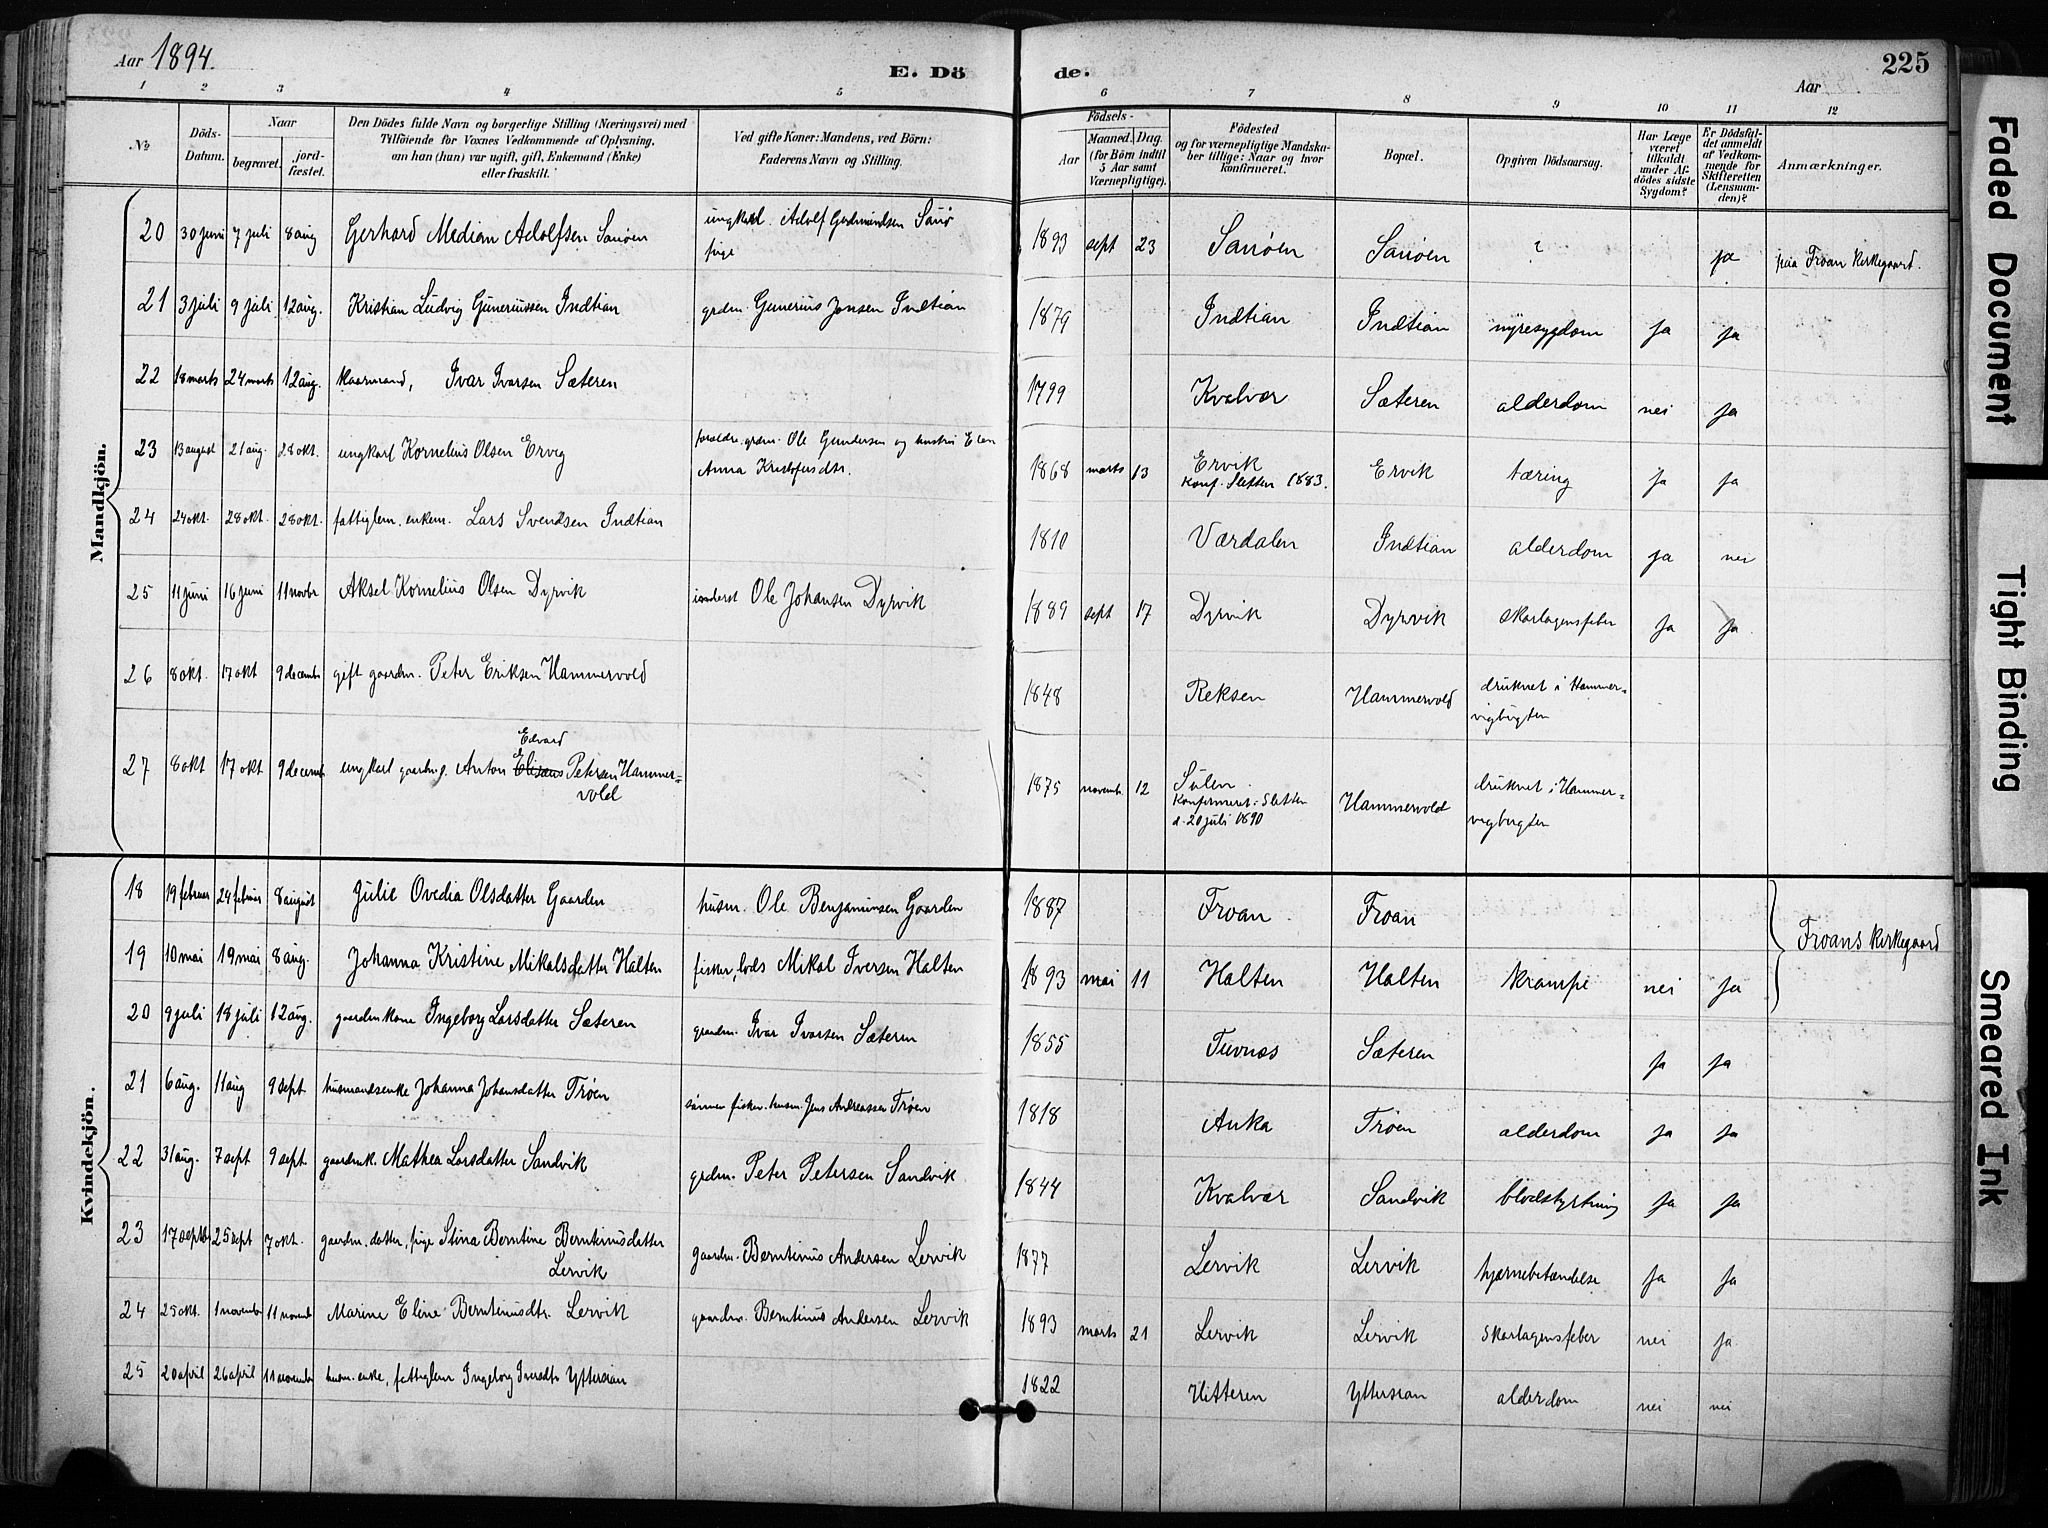 Aar 1894.
E. Dö de.
Aar
225
1 2 3 4 5 6 7 8 9 10 11 12
No
Döds-Datum.
Naar
begravet.
jord-fæstet.
Den Dödes fulde Navn og borgerlige Stilling (Næringsvei) med
Tilföiende for Voxnes Vedkommende af Oplysning,
om han (hun) var ugift, gift, Enkemand (Enke)
eller fraskilt.
Ved gifte Koner: Mandens, ved Börn:
Faderens Navn og Stilling.
Födsels-
Aar
Maaned. Dag.
(for Börn indtil
5 Aar samt
Værnepligtige).
Födested
og for værnepligtige Mandska-
ber tillige: Naar og hvor
konfirmeret.
Bopæl.
Opgiven Dödsaarsag.
Har Læge
været
tilkaldt
under Af-
dödes sidste
Sygdom?
Er Dödsfal-
det anmeldt
af Vedkom-
mende for
Skifteretten
(Lensman-
den)?
Anmærkninger.
Mandkjön.
20 30 juni 7 juli 8 aug Gerhard Median Adolfsen Sauøen ungkarl. Adolf Gudmundsen Sauø pige 1893 sept 23 Sauøen Sauøen ? ja paa Froan Kirkegaard.
21 3 juli 9 juli 12 aug. Kristian Ludvig Guneriussen Indtian grdm. Gunerius Jonsen Indtian 1879 Indtian Indtian nyresygdom ja ja
22 18 marts 24 marts 12 aug. kaarmand, Ivar Ivarsen Sæteren 1799 Kvalvær Sæteren alderdom nei ja
23 13 august 21 aug. 28 okt. ungkarl Kornelius Olsen Ervig forældre grdm. Ole Gundersen og hustru Elen
Anna Kristofersdtr. 1868 marts 13 Ervik
Konf. Sletten 1883. Ervik tæring ja ja
24 24 okt. 28 okt. 28 okt. fattiglem. enkem. Lars Svendsen Indtian 1810 Værdalen Indtian alderdom ja nei
25 11 juni 16 juni 11 novbr Aksel Kornelius Olsen Dyrvik inderst Ole Johansen Dyrvik 1889 sept 17 Dyrvik Dyrvik skarlagensfeber ja ja
26 8 okt. 17 okt 9 decembr gift gaardm. Peter Eriksen Hammervold 1848 Reksen Hammervold druknet i Hammer=
vigbugten
27 8 okt 17 okt 9 decemb. ungkarl gaardm. Anton Edvard Petersen Hammer=
vold 1875 novemb. 12 Sulen.
Konfirmeret: Sletten
d. 20 juli 1890 Hammervold druknet i Hammer=
vigbugten
Kvindekjön.
18 19 februar 24 februar 8 august Julie Ovedia Olsdatter Gaarden husm. Ole Benjaminsen Gaarden 1887 Froan Froan
Froans kirkegaard
19 10 mai 19 mai 8 aug. Johanna Kristine Mikalsdatter Halten fisker, lods Mikal Iversen Halten 1893 mai 11 Halten Halten krampe nei ja
20 9 juli 18 juli 12 aug. gaardmkone Ingeborg Larsdatter Sæteren graadm. Ivar Ivarsen Sæteren 1855 Tuvnes Sæteren ja ja
21 6 aug. 11 aug 9 sept. husmandsenke Johanna Johansdatter Trøen sönnen fisker. husm. Jens Andreassen Trøen 1818 Auka Trøen alderdom ja ja
22 31 aug. 7 sept 9 sept. gaardmk. Mathea Larsdatter Sandvik grdm. Peter Petersen Sandvik 1844 Kvalvær Sandvik blodstyrtning ja ja
23 17 septb 25 sept 7 okt. gaardm. datter, pige Stina Berntine Berntinusdatter
Lervik gaardm. Berntinus Andersen Lervik 1877 Lervik Lervik hjernebetændelse ja ja
24 25 okt. 1 novembr 11 novemb Marine Eline Berntinusdtr. Lervik gaardm. Berntinus Andersen Lervik 1893 marts 21 Lervik Lervik skarlagensfeber nei ja
25 20 april 26 april 11 november husm. enke, fattiglem Ingeborg Iversdtr Yttersian 1822 Hitteren Yttersian alderdom nei nei
Faded Document
Tight Binding
Smeared Ink